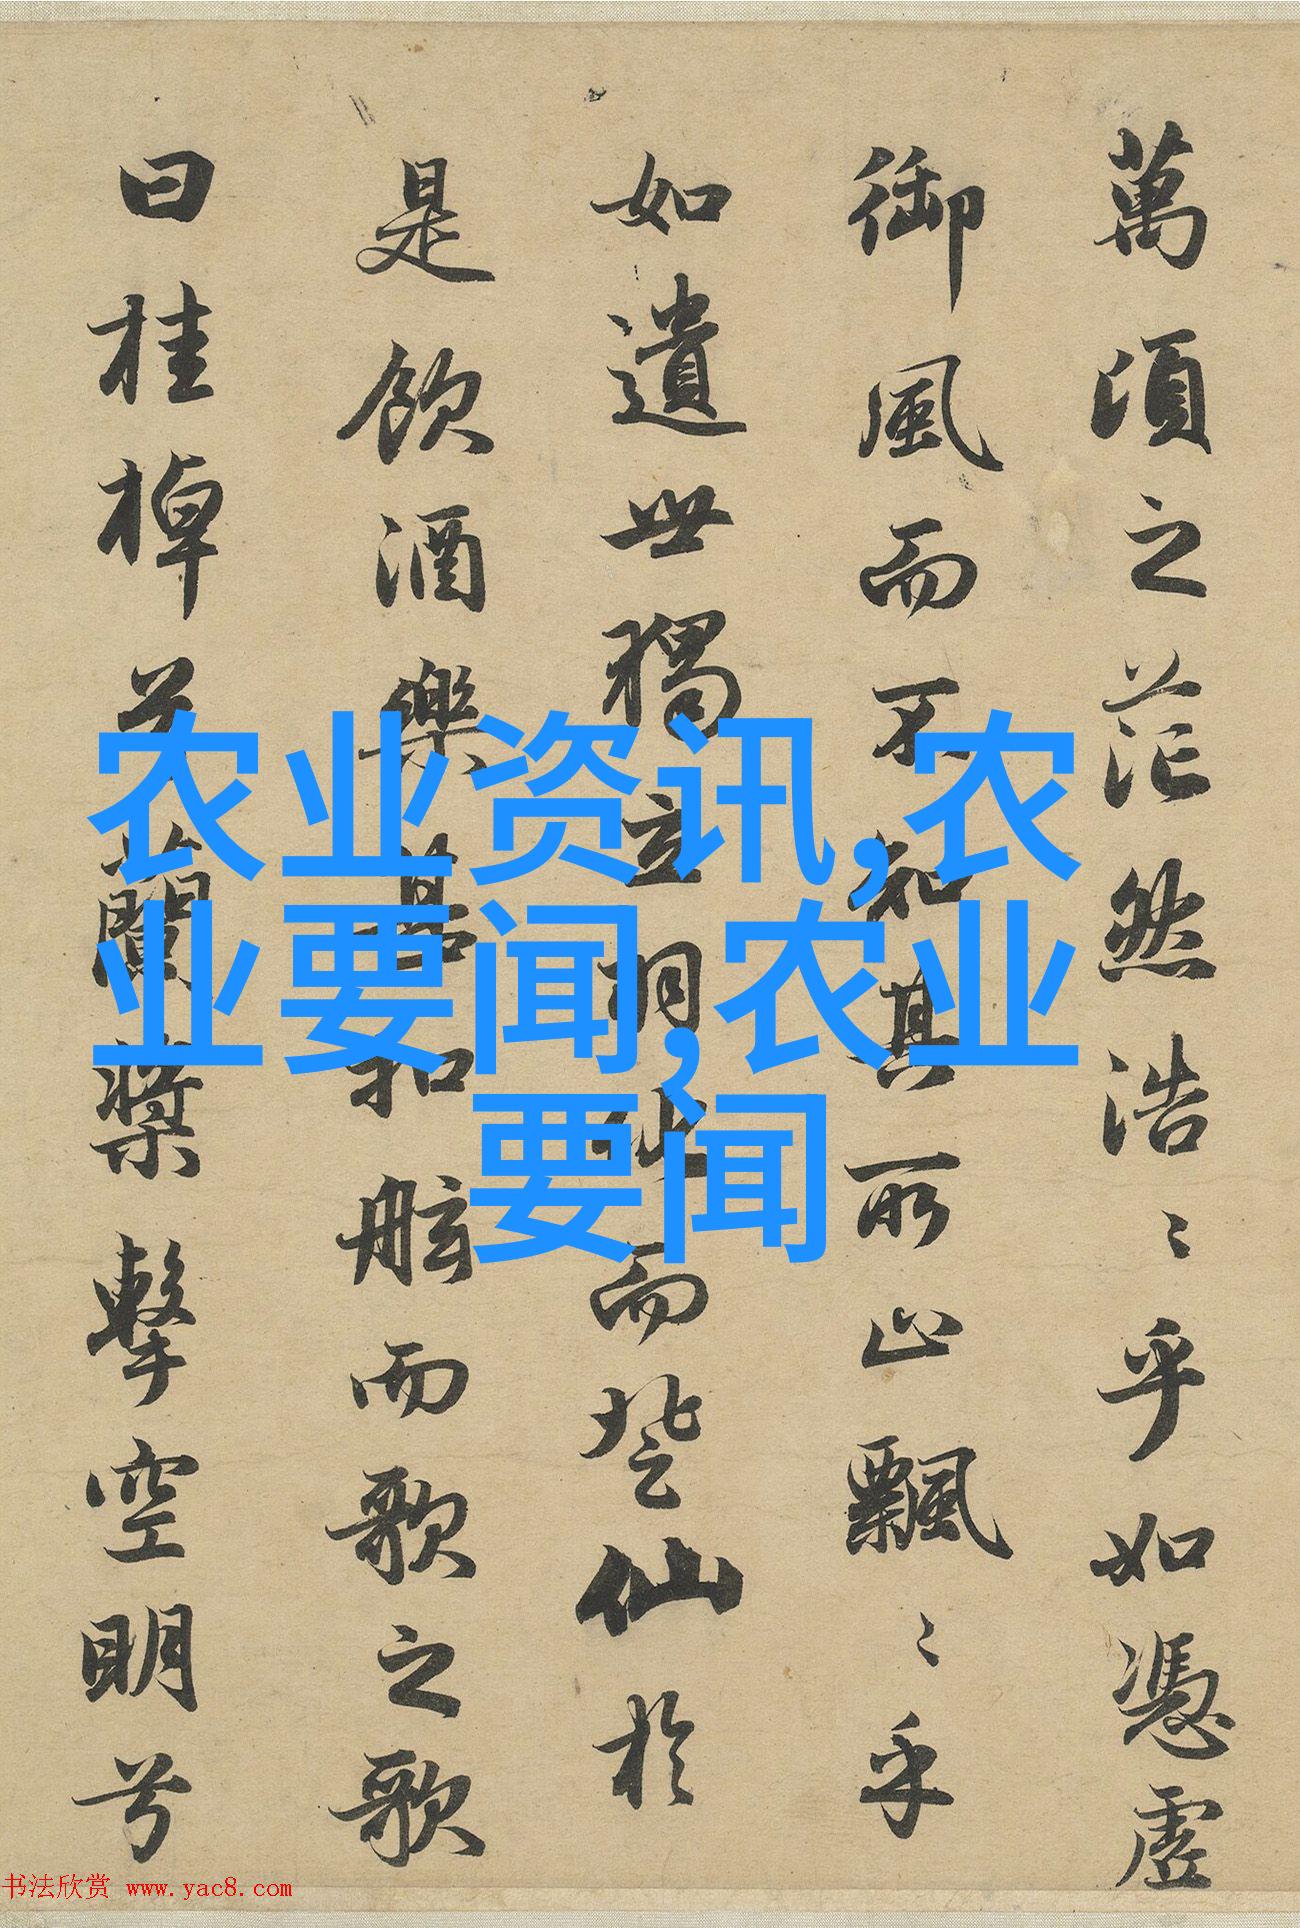 萬頃之茫然浩〻乎如憑虛
御風而不知其所止飄〻乎
如遺世獨立羽化而登仙於
是飲酒樂甚扣舷而歌之歌
曰桂棹兮蘭槳擊空明兮
农业资讯,农
业要闻,农业
要闻
书法欣赏 www.yac8.com